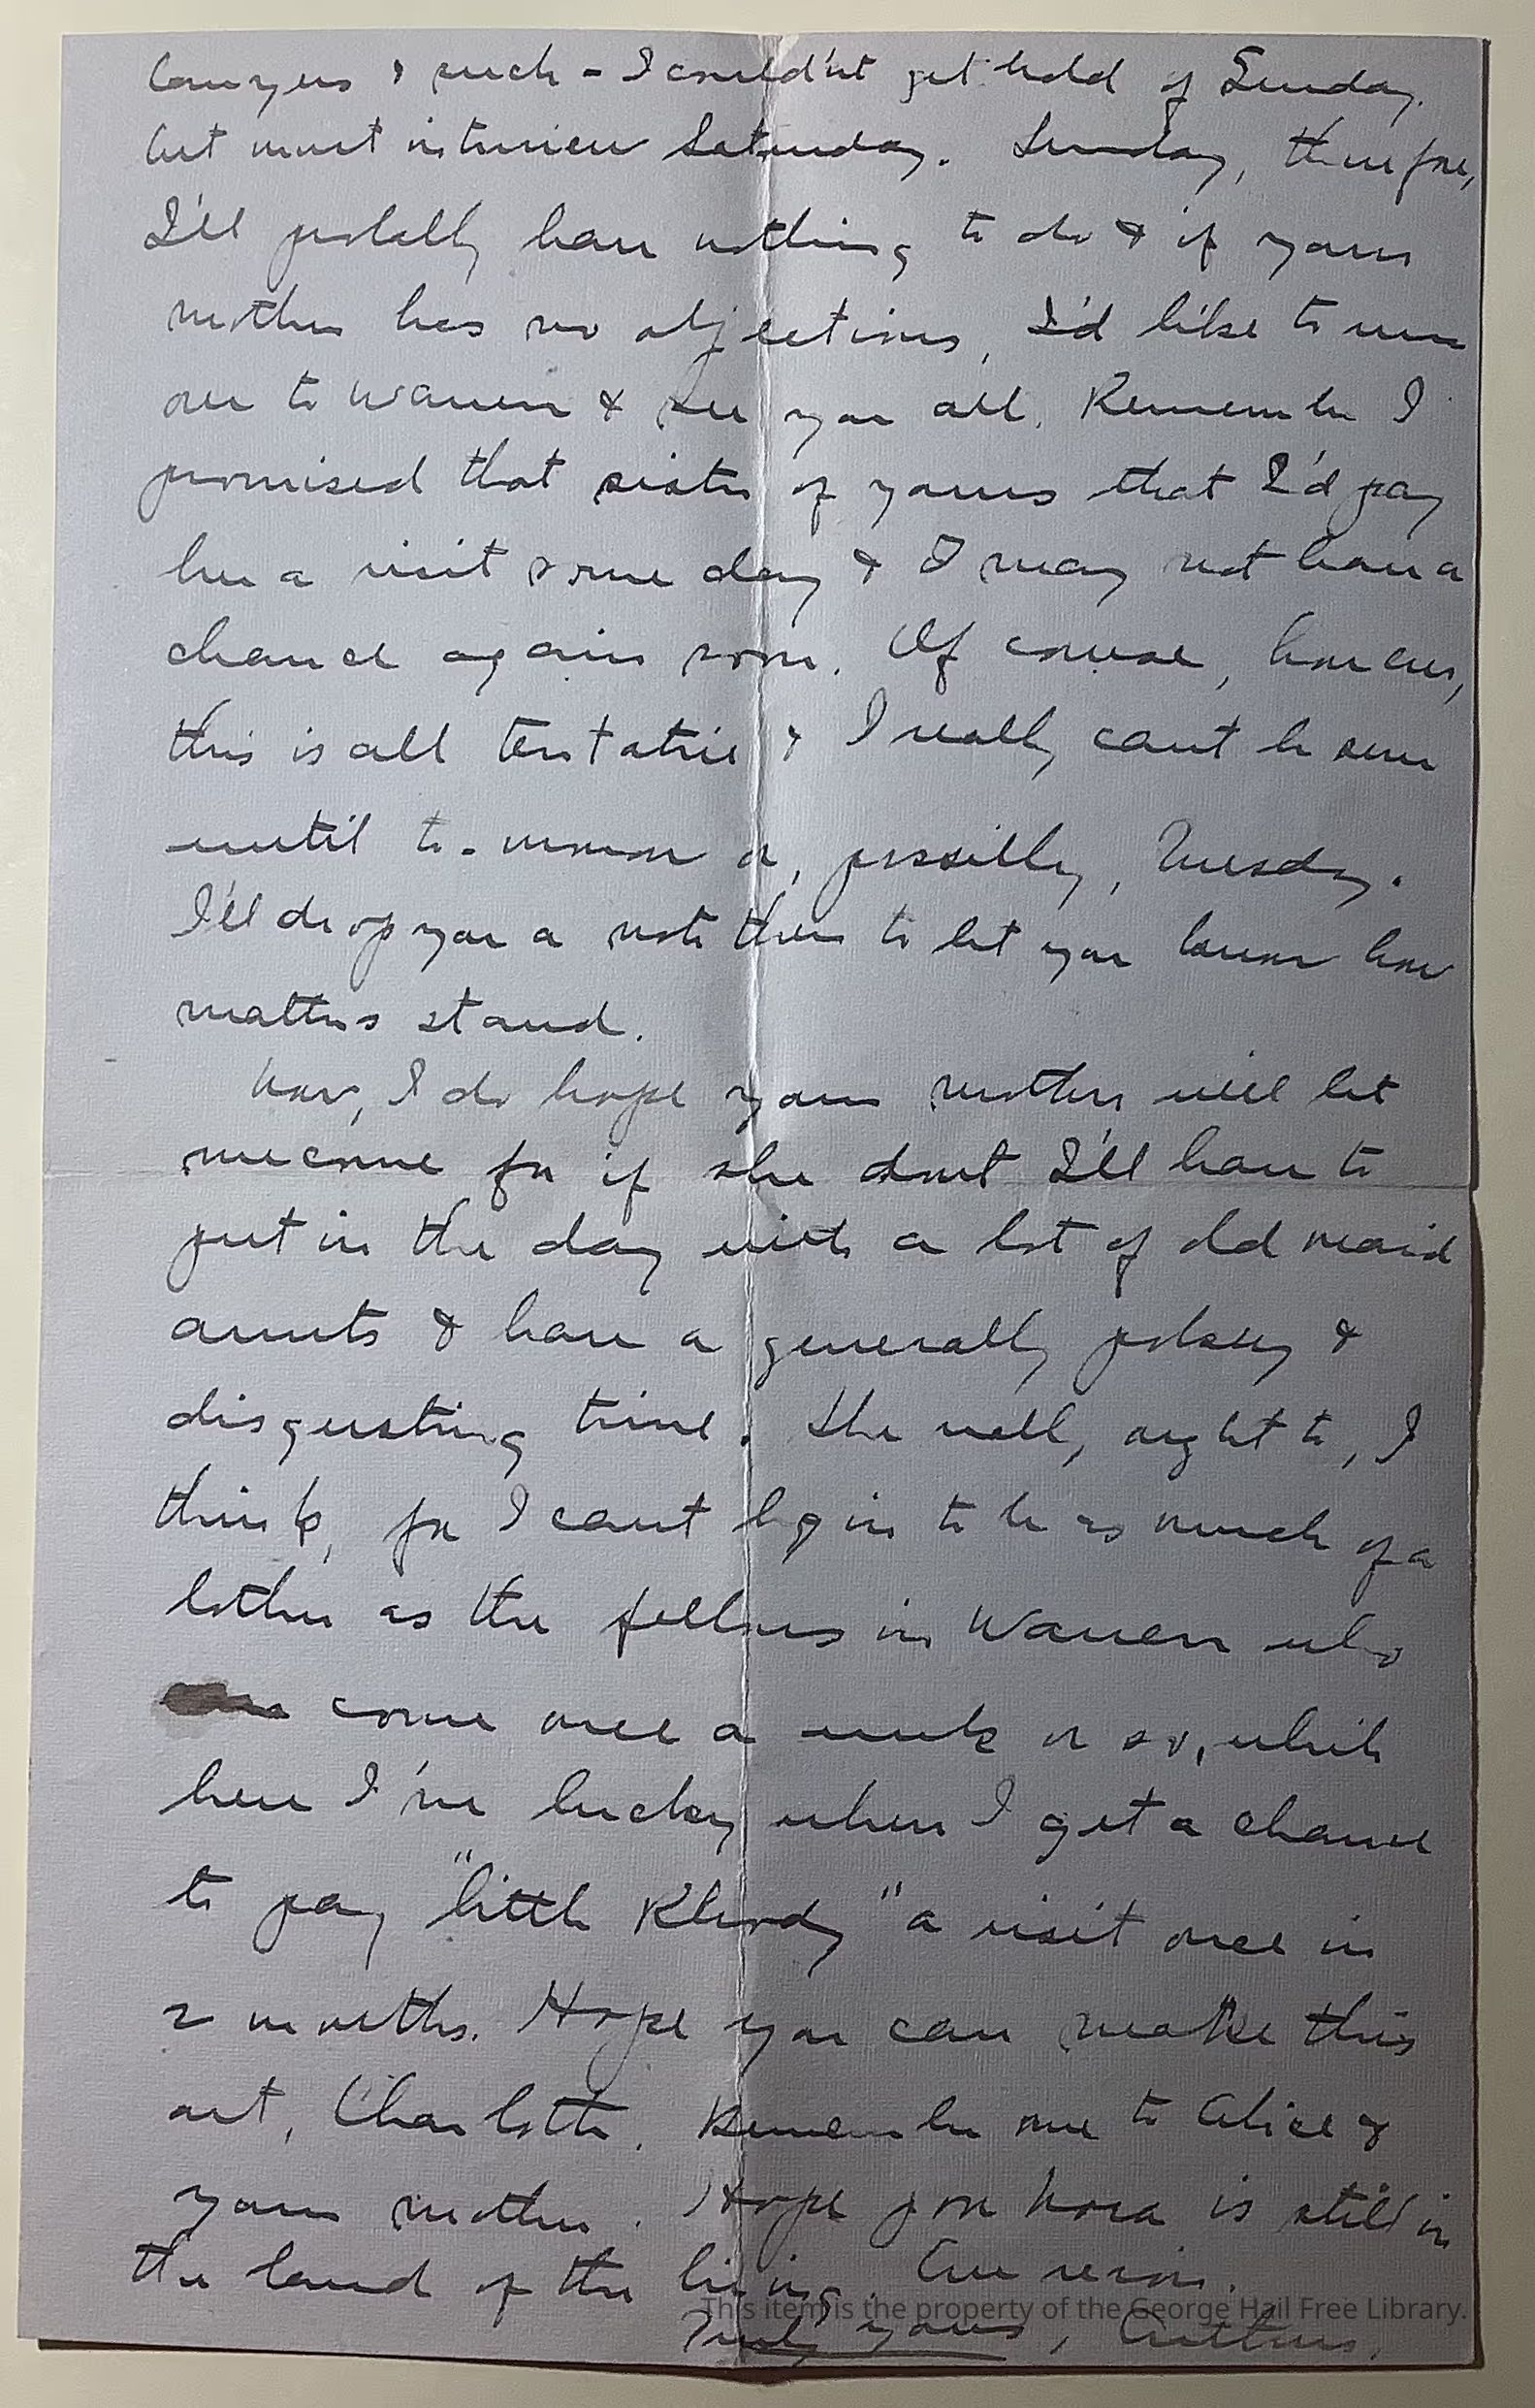 lawyers & such - I could'nt get hold of Sunday.
but must interview Saturday. Sunday, therefore,
I'll probally have nothing to do & if your
mother has no objections, I'd like to run
over to Warren & see you all. Remember I
promised that sister of yours that I'd pay
her a visit some day & I may not have a
chance again soon. Of course, however,
this is all tentative & I really cant be sure
until to-morrow or, possibly, Tuesday.
I'll drop you a note then to let you know how
matters stand.
Now, I do hope your mother will let
me come for if she dont I'll have to
put in the day with a lot of old maid
aunts & have a generally pokey &
disgusting time. She really, ought to, I
think, for I cant begin to be as much of a
bother as the fellows in Warren who
come once a week or so, while
here I'm lucky when I get a chance
to pay "little Rhody" a visit once in
2 months. Hope you can make this
out, Charlotte. Remember me to Alice &
your mother. Hope poor Nora is still in
the land of the living. Au revoir.
Truly yours, Arthur.
This item is the property of the George Hail Free Library.